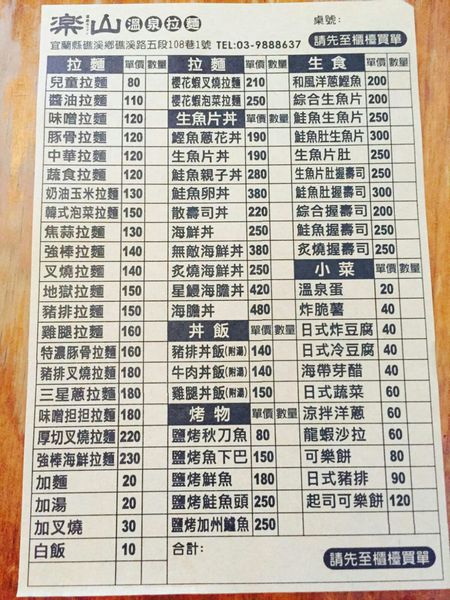 楽山 溫泉拉麵 桌號:
宜蘭縣礁溪鄉礁溪路五段108巷1號 TEL:03-9888637 請先至櫃檯買單
拉麵 單價 數量
兒童拉麵 80
醬油拉麵 110
味噌拉麵 120
豚骨拉麵 120
中華拉麵 120
蔬食拉麵 120
奶油玉米拉麵 130
韓式泡菜拉麵 150
焦蒜拉麵 130
強棒拉麵 140
叉燒拉麵 140
地獄拉麵 150
豬排拉麵 150
雞腿拉麵 160
特濃豚骨拉麵 160
豬排叉燒拉麵 180
三星蔥拉麵 180
味噌担担拉麵 180
厚切叉燒拉麵 220
強棒海鮮拉麵 230
加麵 20
加湯 20
加叉燒 30
白飯 10
拉麵 單價 數量
櫻花蝦叉燒拉麵 210
櫻花蝦泡菜拉麵 250
生魚片丼 單價 數量
鰹魚蔥花丼 190
生魚片丼 190
鮭魚親子丼 280
鮭魚卵丼 380
散壽司丼 220
海鮮丼 250
無敵海鮮丼 380
炙燒海鮮丼 250
星鰻海膽丼 420
海膽丼 480
丼飯 單價 數量
豬排丼飯(附湯) 140
牛肉丼飯(附湯) 140
雞腿丼飯(附湯) 150
烤物 單價 數量
鹽烤秋刀魚 80
鹽烤魚下巴 150
鹽烤鮮魚 180
鹽烤鮭魚頭 250
鹽烤加州鱸魚 250
合計:
生食 單價 數量
和風洋蔥鰹魚 200
綜合生魚片 200
鮭魚生魚片 250
鮭魚肚生魚片 300
生魚片肚 250
生魚片肚握壽司 250
鮭魚肚握壽司 300
綜合握壽司 200
鮭魚握壽司 250
炙燒握壽司 250
小菜 單價 數量
溫泉蛋 20
炸脆薯 40
日式炸豆腐 40
日式冷豆腐 40
海帶芽醋 40
日式蔬菜 60
涼拌洋蔥 60
龍蝦沙拉 60
可樂餅 80
日式豬排 90
起司可樂餅 120
請先至櫃檯買單